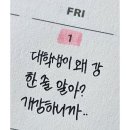 FRI
1
대학생이 왜 강
한 줄 알아?
개강하니까..